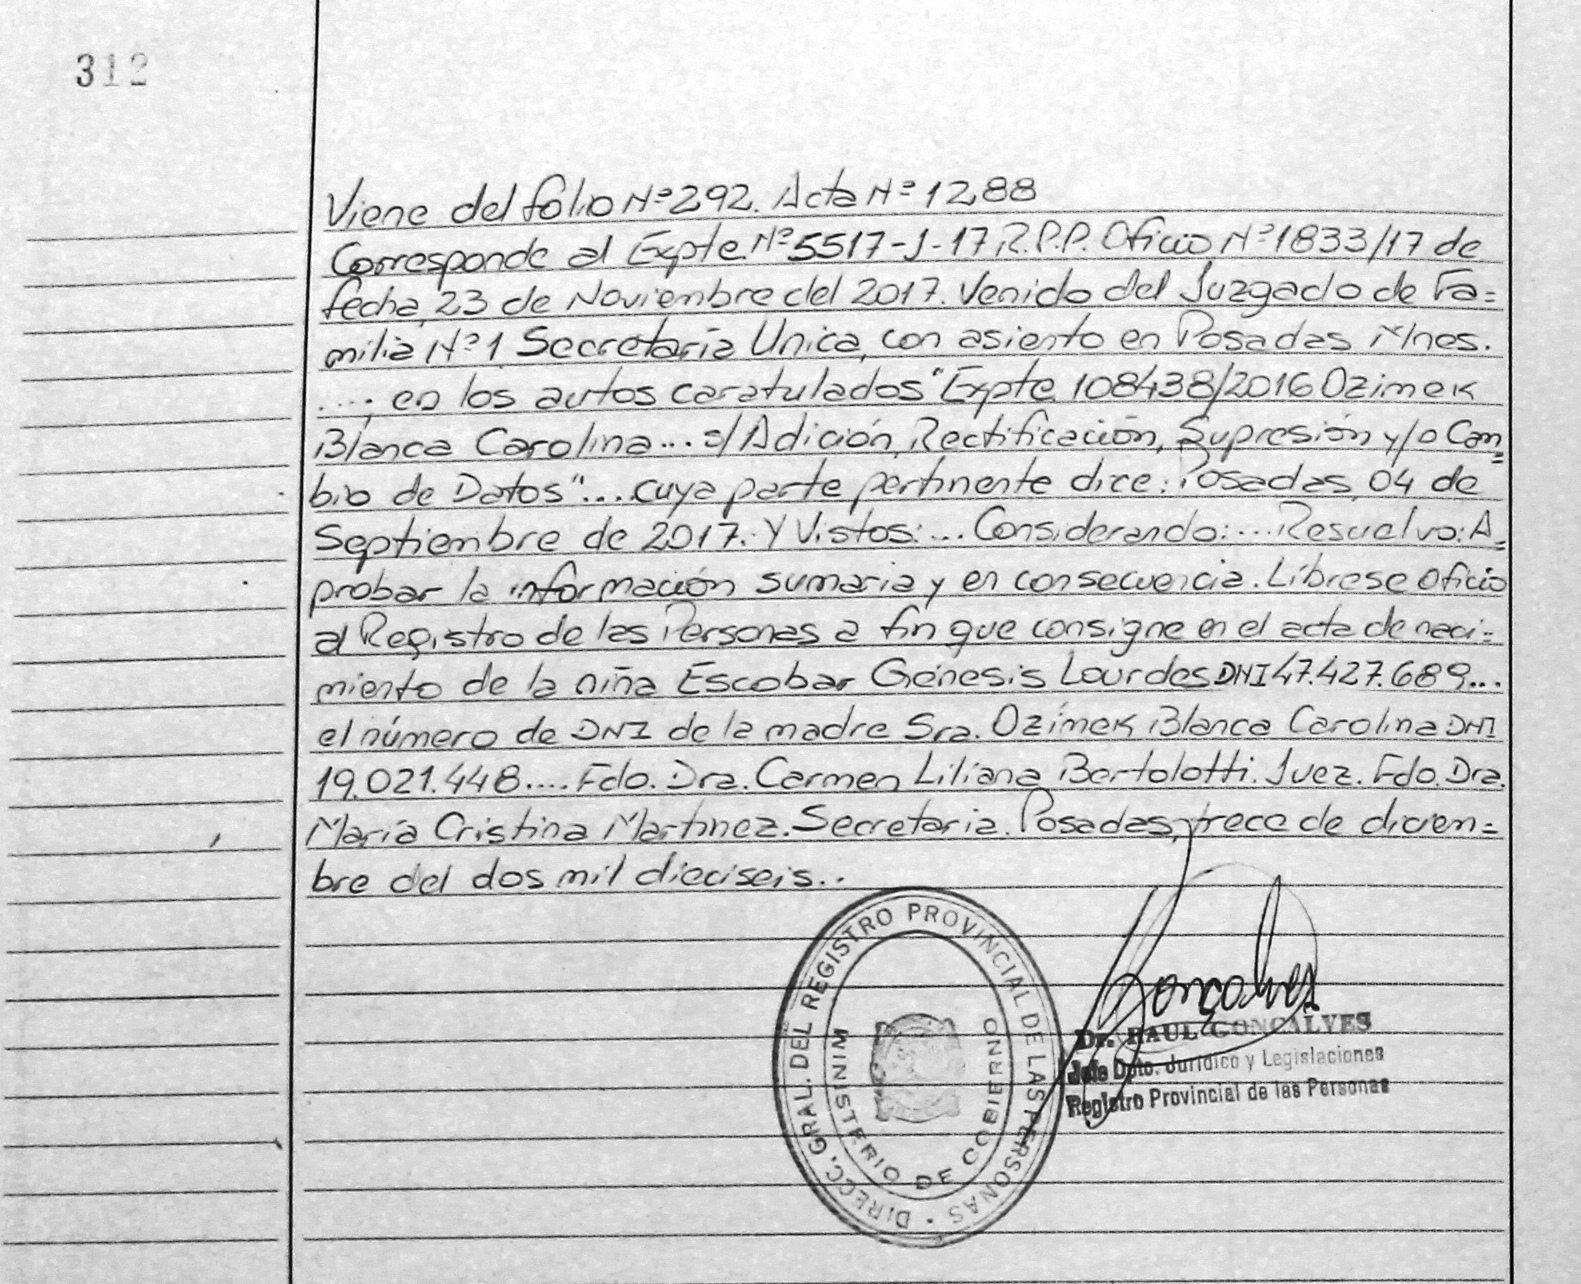 312
Viene del folio Nº 292. Acta Nº 1288
Corresponde al Expte. Nº 5517-J-17 R.P.P. Oficio Nº 1833/17 de
fecha, 23 de Noviembre del 2017. Venido del Juzgado de Fa=
milia Nº 1 Secretaría Unica, con asiento en Posadas Mnes.
...., en los autos caratulados "Expte. 108438/2016 Ozimek
Blanca Carolina... s/Adición, Rectificación, Supresión y/o Cam=
bio de Datos"... cuya parte pertinente dice: Posadas, 04 de
Septiembre de 2017. Y Vistos:... Considerando:... Resuelvo: A=
probar la información sumaria y en consecuencia. Líbrese oficio
al Registro de las Personas a fin que consigne en el acta de naci=
miento de la niña Escobar Génesis Lourdes DNI 47.427.689...
el número de DNI de la madre Sra. Ozimek Blanca Carolina DNI
19.021.448.... Fdo. Dra. Carmen Liliana Bertolotti. Juez. Fdo. Dra.
María Cristina Martinez. Secretaria. Posadas, trece de diciem=
bre del dos mil dieciseis..
DIRECC. GRAL. DEL REGISTRO PROVINCIAL DE LAS PERSONAS
MINISTERIO DE GOBIERNO
Gonçalves
Dr. RAUL GONCALVES
Jefe Dpto. Jurídico y Legislaciones
Registro Provincial de las Personas